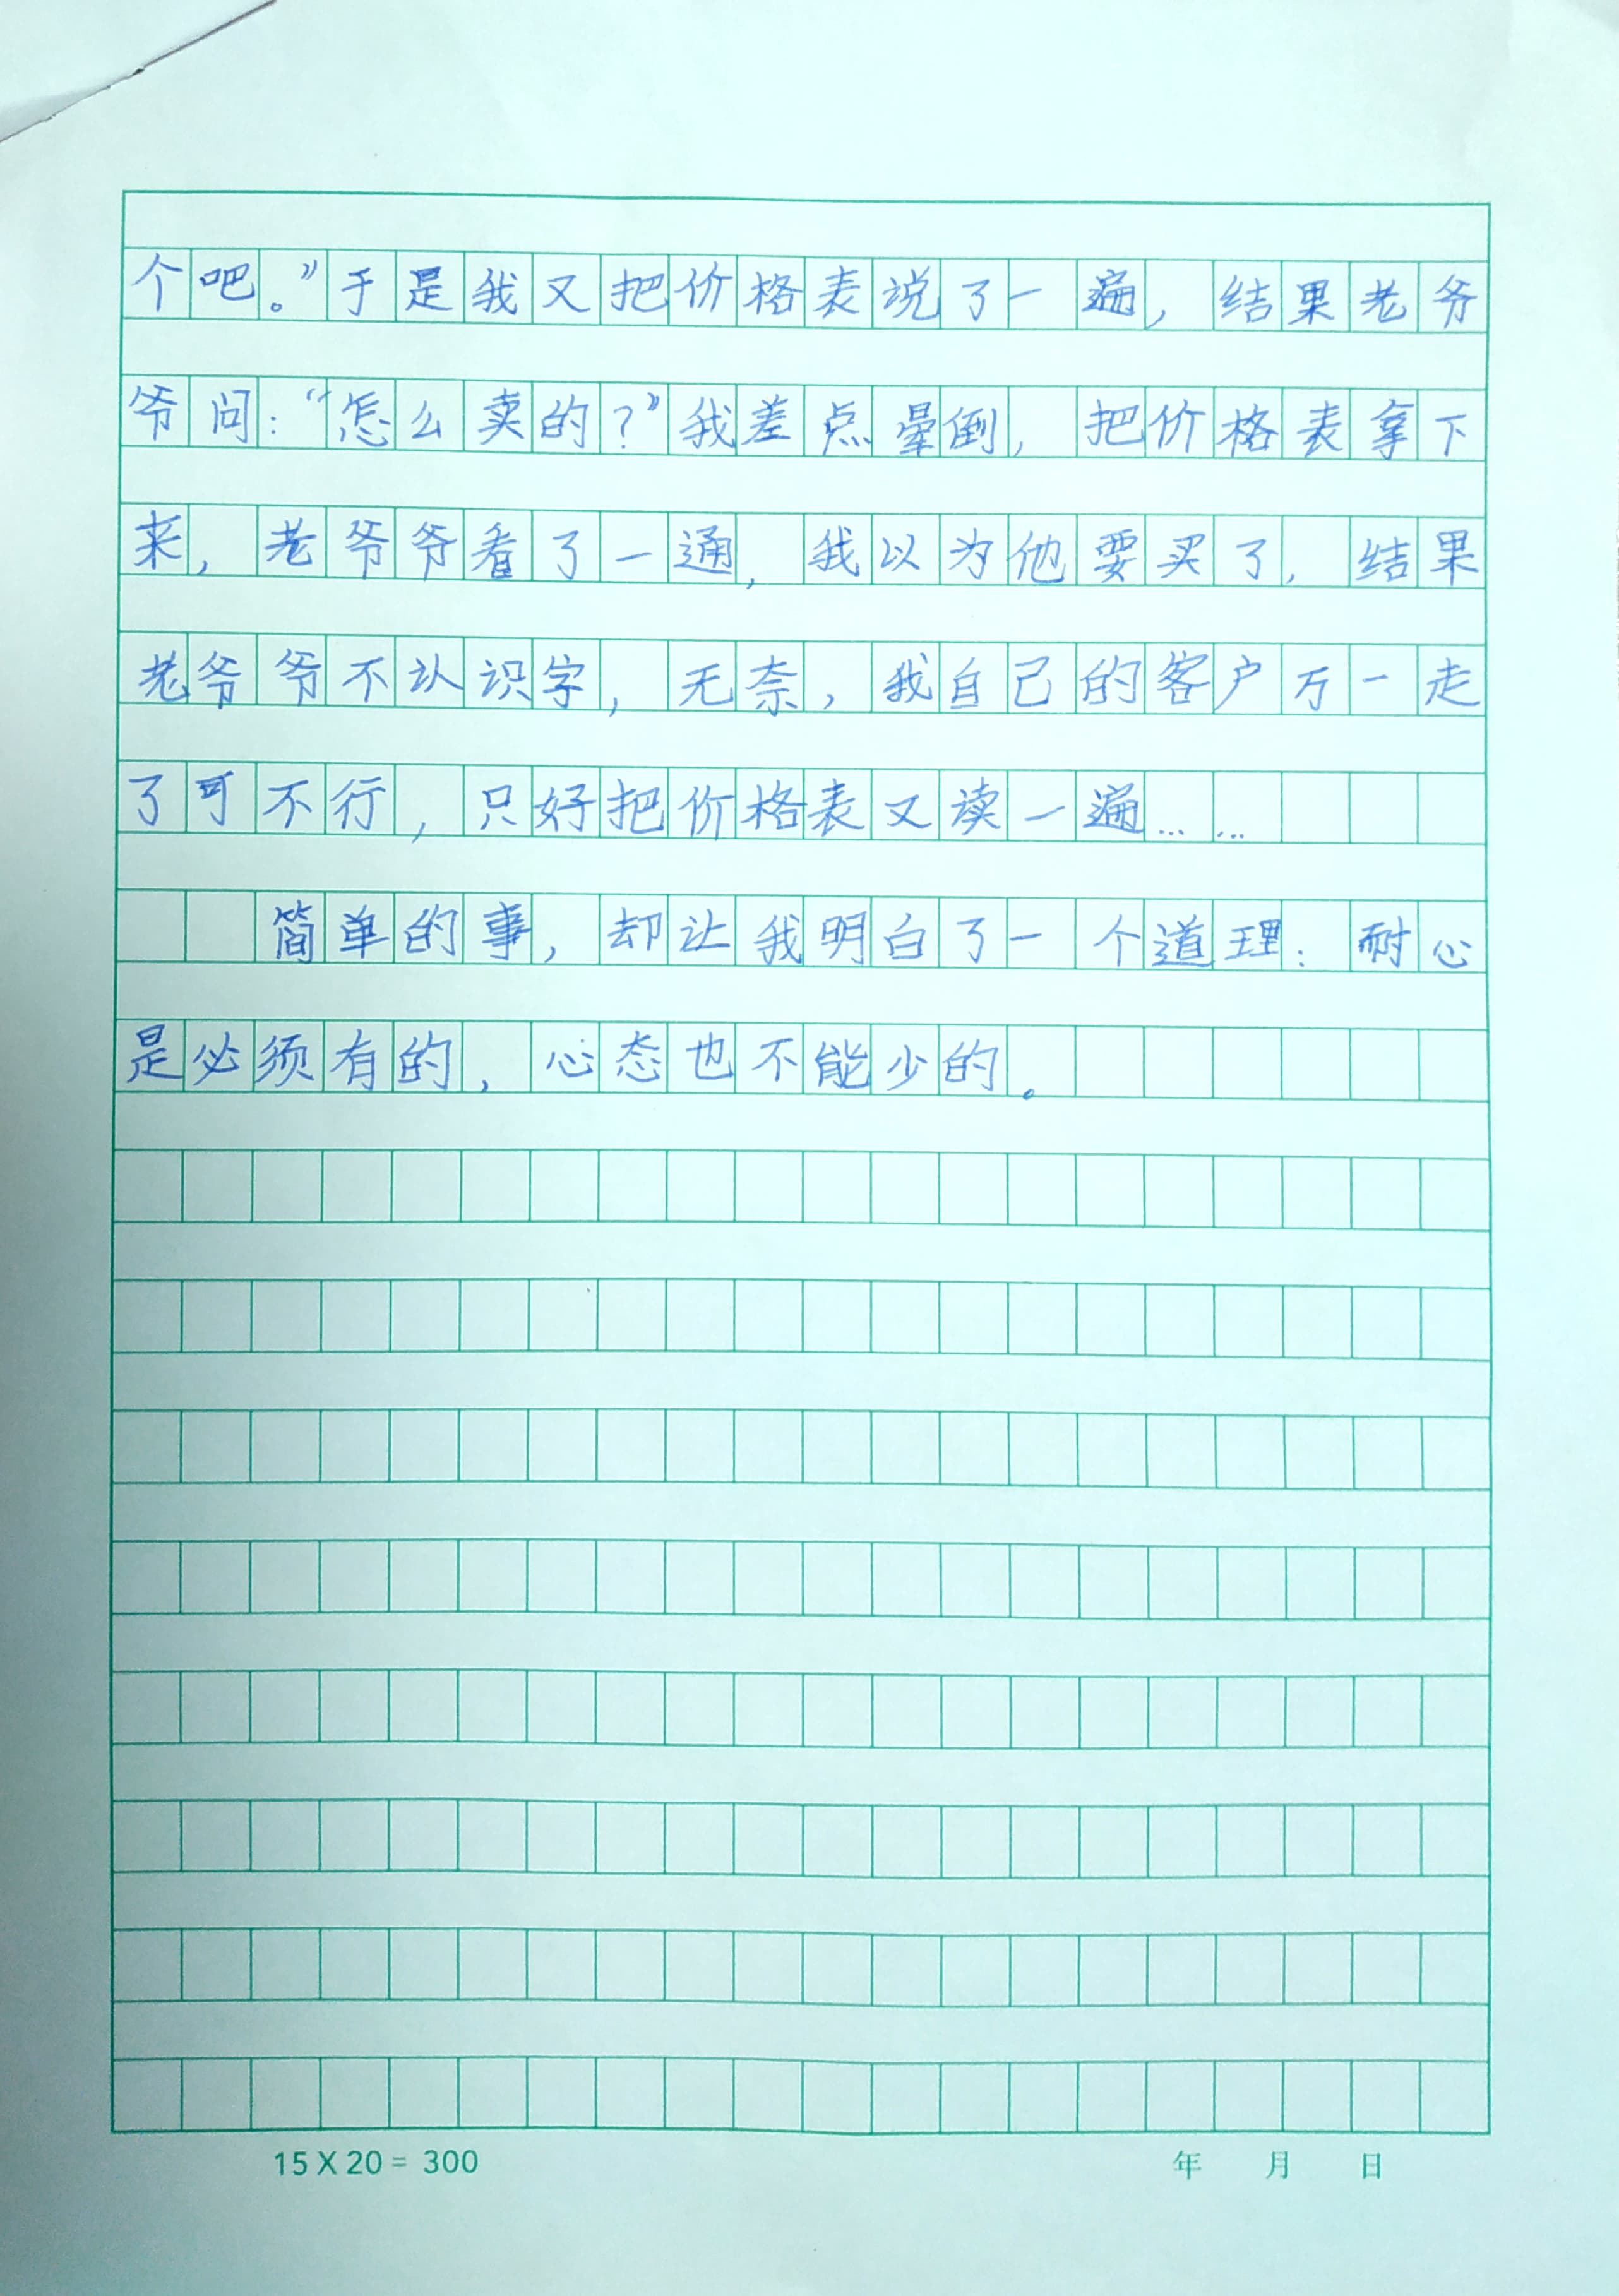 个吧。”于是我又把价格表说了一遍，结果老爷
爷问：“怎么卖的？”我差点晕倒，把价格表拿下
来，老爷爷看了一通，我以为他要买了，结果
老爷爷不认识字，无奈，我自己的客户万一走
了可不行，只好把价格表又读一遍……
简单的事，却让我明白了一个道理：耐心
是必须有的，心态也不能少的。
15X20=300 年 月 日